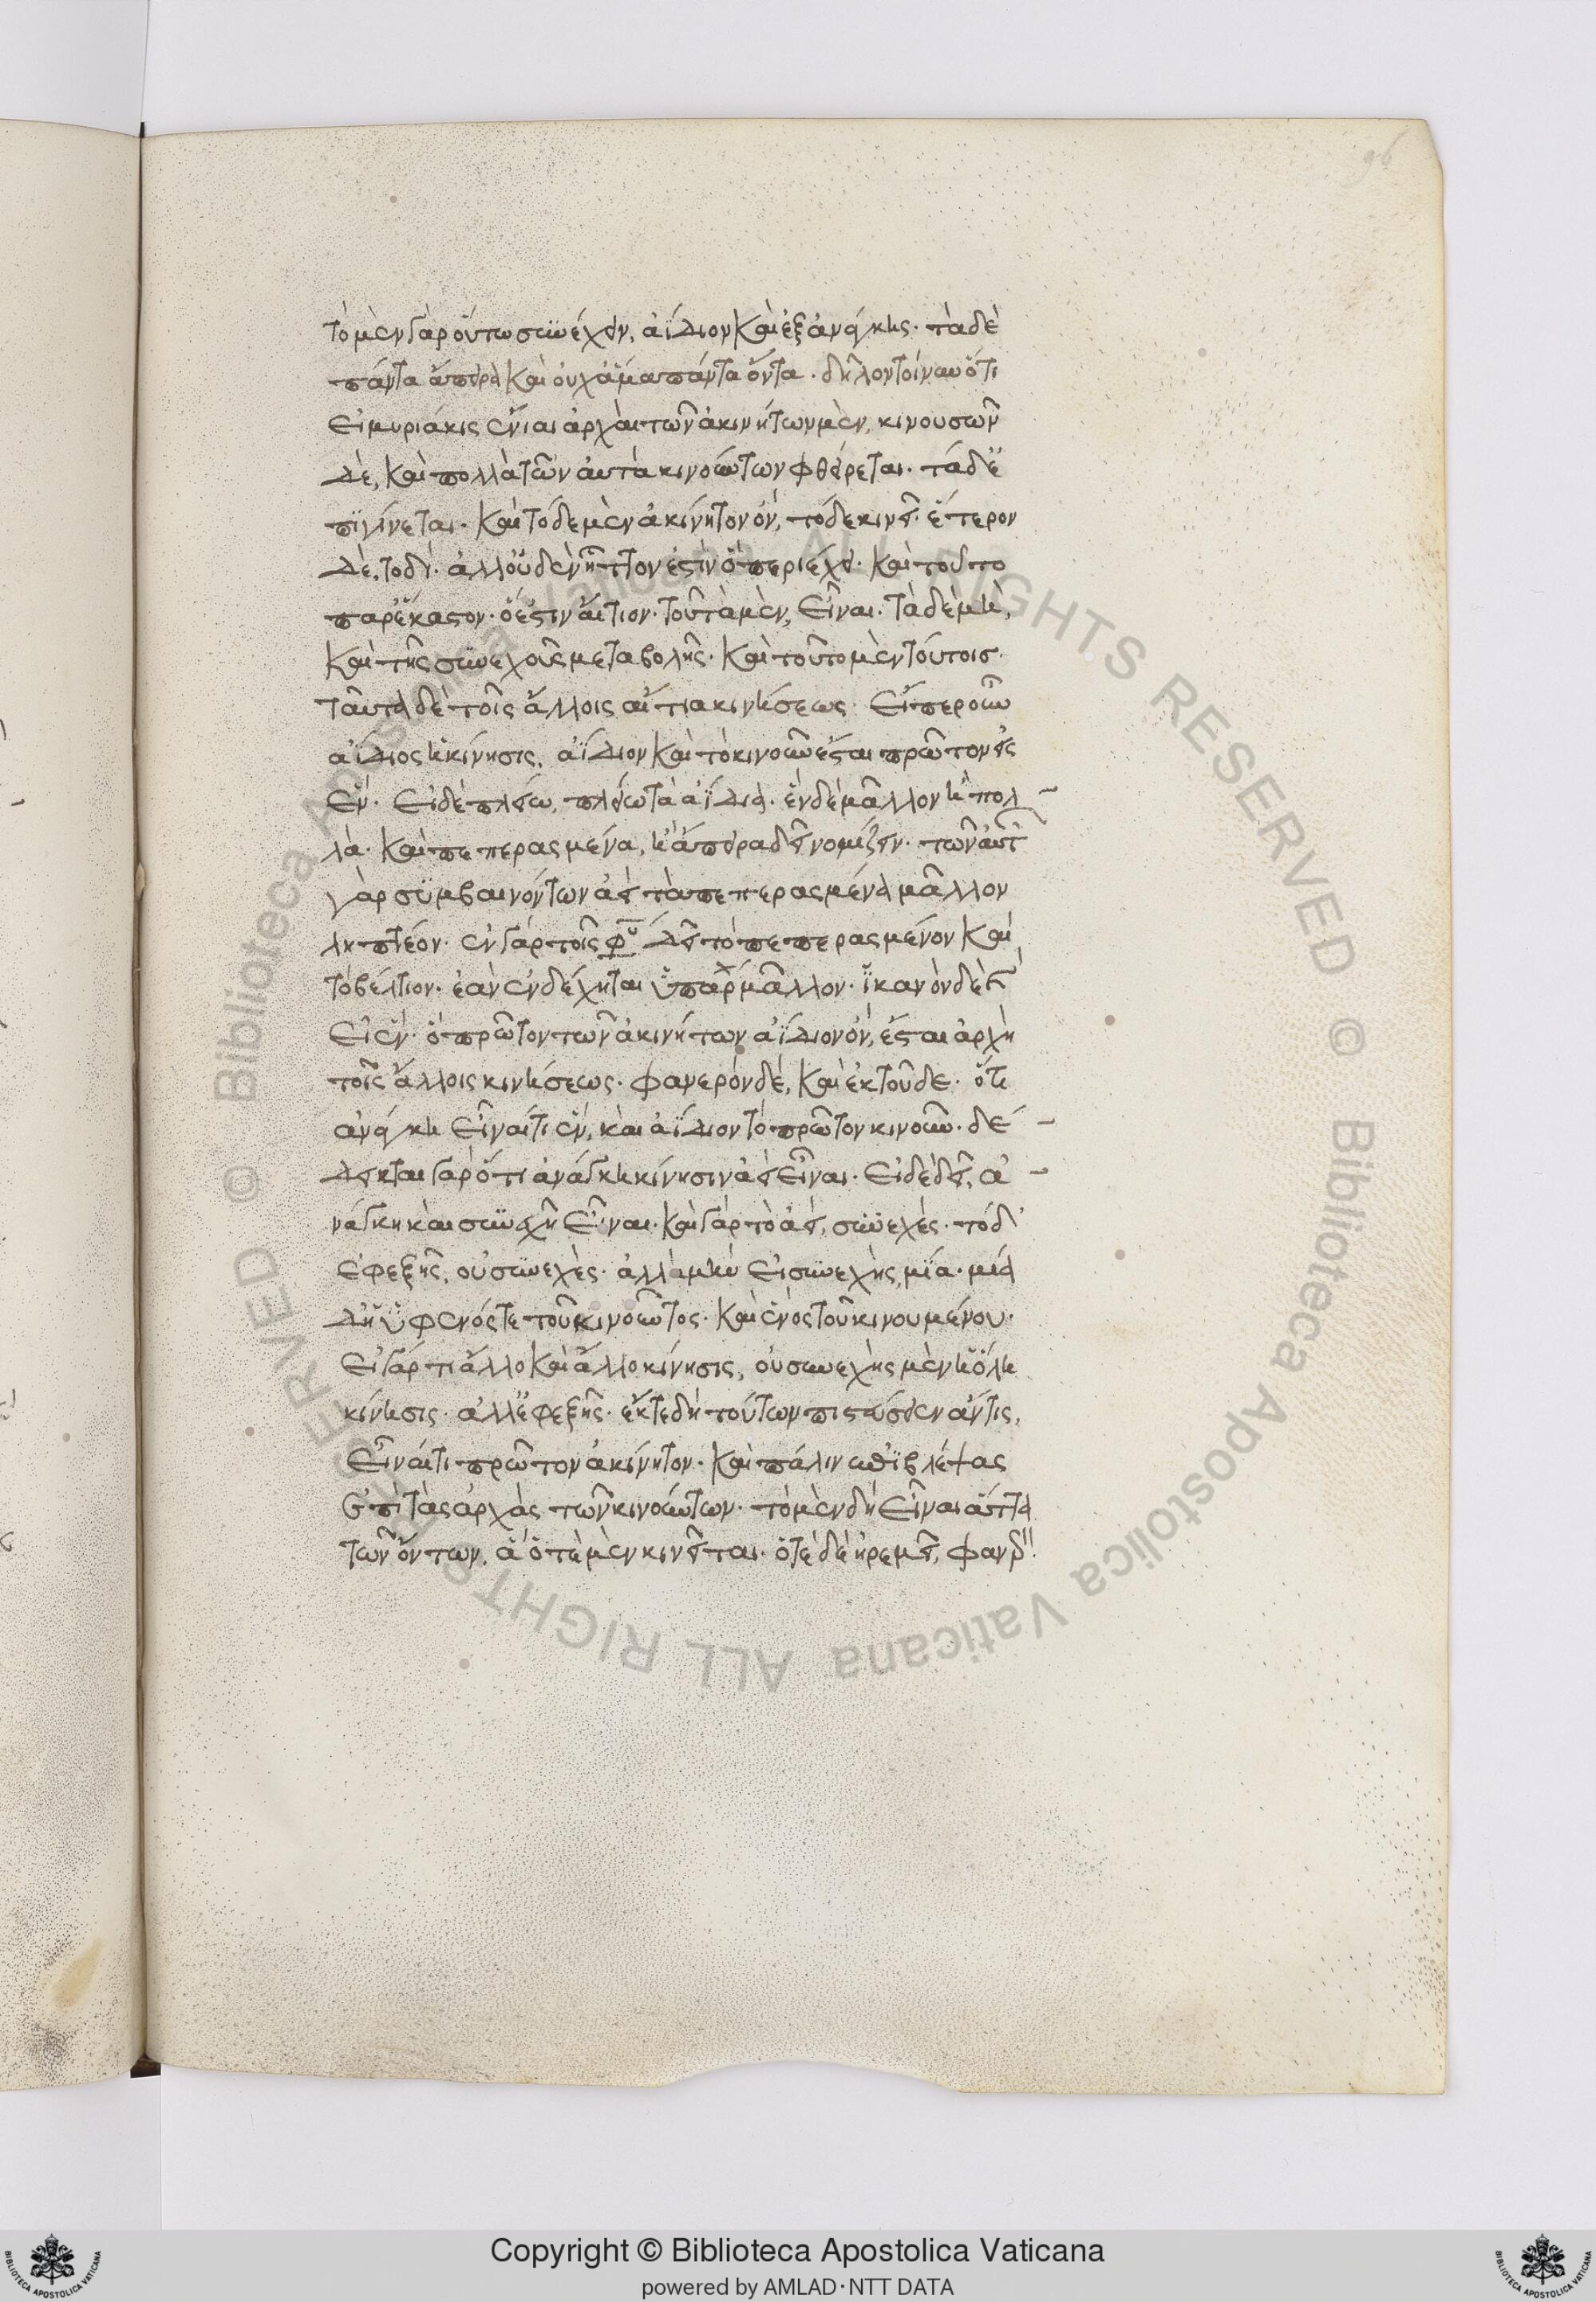 96
τὸ μὲν γὰρ οὕτω συνέχειν, ἀΐδιον καὶ ἐξ ἀνάγκης· τὰ δὲ
πάντα ἄπειρα καὶ οὐχ ἅμα πάντα ὄντα· δῆλον τοίνυν ὅτι
εἰ μυριάκις ἔνιαι ἀρχαὶ τῶν ἀκινήτων μὲν, κινουσῶν
δὲ, καὶ πολλὰ τῶν αὐτὰ κινούντων φθείρεται· τάδ' ἐ
πιγίνεται· καὶ τόδε μὲν ἀκίνητον ὂν, τόδε κινεῖ· ἕτερον
δὲ, τοδί· ἀλλ' οὐδὲν ἧττον ἐστὶν ὃ περιέχει· καὶ τοῦτο
παρ' ἕκαστον· ὅ ἐστιν αἴτιον· τοῦ τὰ μὲν, εἶναι· τὰ δὲ μὴ,
καὶ τῆς συνεχοῦς μεταβολῆς· καὶ τοῦτο μὲν τούτοις·
ταῦτα δὲ τοῖς ἄλλοις αἴτια κινήσεως· εἴπερ οὖν
ἀΐδιος ἡ κίνησις, ἀΐδιον καὶ τὸ κινοῦν ἔσται πρῶτον εἰς
ἕν· εἰ δὲ πλείω, πλείω τὰ ἀΐδια· ἓν δὲ μᾶλλον ἢ πολ
λὰ· καὶ πεπερασμένα, ἢ ἄπειρα δεῖ νομίζειν· τῶν αὐτῶν
γὰρ συμβαινόντων ἀεὶ τὰ πεπερασμένα μᾶλλον
ληπτέον· ἐν γὰρ τοῖς φυ δεῖ τὸ πεπερασμένον καὶ
τὸ βέλτιον· ἐὰν ἐνδέχηται ὑπάρχ μᾶλλον· ἱκανὸν δὲ καὶ
εἰ ἕν· ὃ πρῶτον τῶν ἀκινήτων ἀΐδιον ὂν, ἔσται ἀρχὴ
τοῖς ἄλλοις κινήσεως· φανερὸν δέ, καὶ ἐκ τοῦδε· ὅτι
ἀνάγκη εἶναί τι ἓν, καὶ ἀΐδιον τὸ πρῶτον κινοῦν· δέ
δεικται γὰρ ὅτι ἀνάγκη κίνησιν ἀεὶ εἶναι· εἰ δὲ δεῖ, ἀ
νάγκη καὶ συνεχῆ εἶναι· καὶ γὰρ τὸ ἀεὶ, συνεχὲς· τὸ δ'
ἐφεξῆς, οὐ συνεχὲς· ἀλλὰ μὴν εἰ συνεχὴς, μία· μία
δὴ ὑφ' ἑνός τε τοῦ κινοῦντος· καὶ ἑνὸς τοῦ κινουμένου·
εἰ γάρ τι ἄλλο καὶ ἄλλο κίνησις, οὐ συνεχὴς μὲν ἡ ὅλη
κίνησις· ἀλλ' ἐφεξῆς· ἔκ τε δὴ τούτων πιστεύσειεν ἄν τις,
εἶναί τι πρῶτον ἀκίνητον· καὶ πάλιν ἐπιβλέψας
ἐπὶ τὰς ἀρχὰς τῶν κινούντων· τὸ μὲν δὴ εἶναι ἄττα
τῶν ὄντων, ἃ ὁτὲ μὲν κινεῖται· ὁτὲ δὲ ἠρεμεῖ, φανερ
Copyright © Biblioteca Apostolica Vaticana
powered by AMLAD · NTT DATA